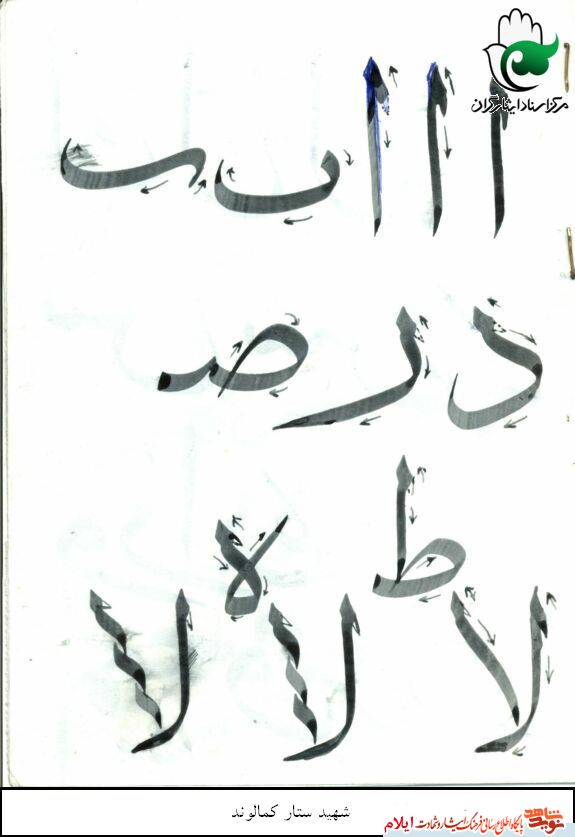 مرکز اسناد ایثارگران
ا ا ا ب
د ر صـ
ط
لا لا لا
شهید ستار کمالوند
نوید شاهد
پایگاه اطلاع رسانی فرهنگ ایثار و شهادت ایلام